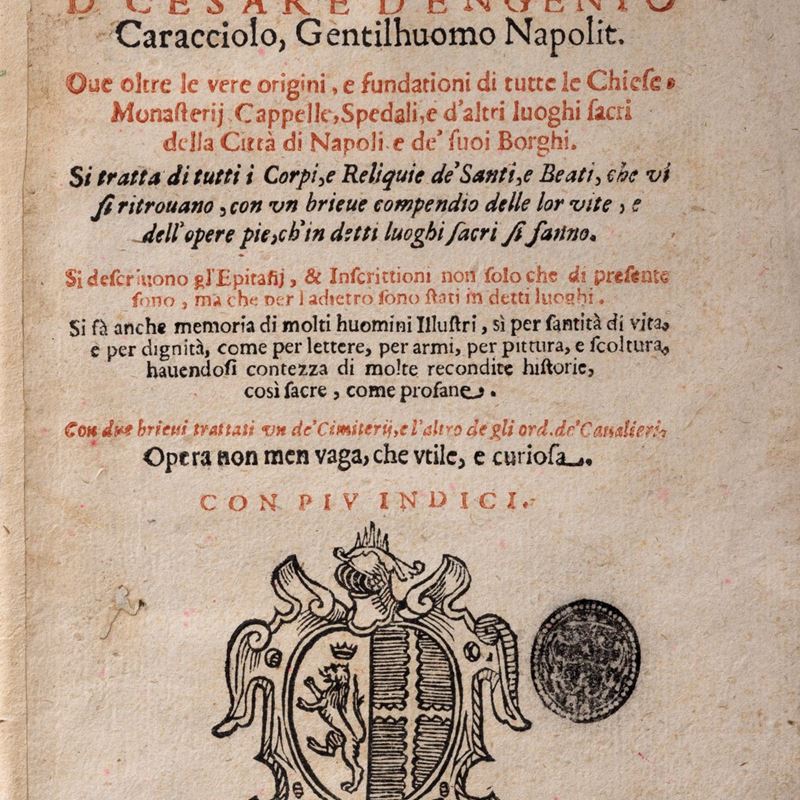 D CESARE D'ENGENIO
Caracciolo, Gentilhuomo Napolit.
Oue oltre le vere origini, e fundationi di tutte le Chiese,
Monaſterij Cappelle, Spedali, e d'altri luoghi ſacri
della Città di Napoli. e de' ſuoi Borghi.
Si tratta di tutti i Corpi, e Reliquie de' Santi, e Beati, che vi
ſi ritrouano, con vn brieue compendio delle lor vite, e
dell'opere pie, ch'in detti luoghi ſacri ſi fanno.
Si deſcriuono gl'Epitafij, & Inſcrittioni non ſolo che di preſente
ſono, ma che per l adietro ſono ſtati in detti luoghi.
Si fà anche memoria di molti huomini Illuſtri, sì per ſantità di vita,
e per dignità, come per lettere, per armi, per pittura, e ſcoltura,
hauendoſi contezza di molte recondite hiſtorie,
così ſacre, come profane.
Con due brieui trattati vn de' Cimiterij, e l'altro de gli ord. de' Caualieri,
Opera non men vaga, che vtile, e curioſa.
CON PIV INDICI.